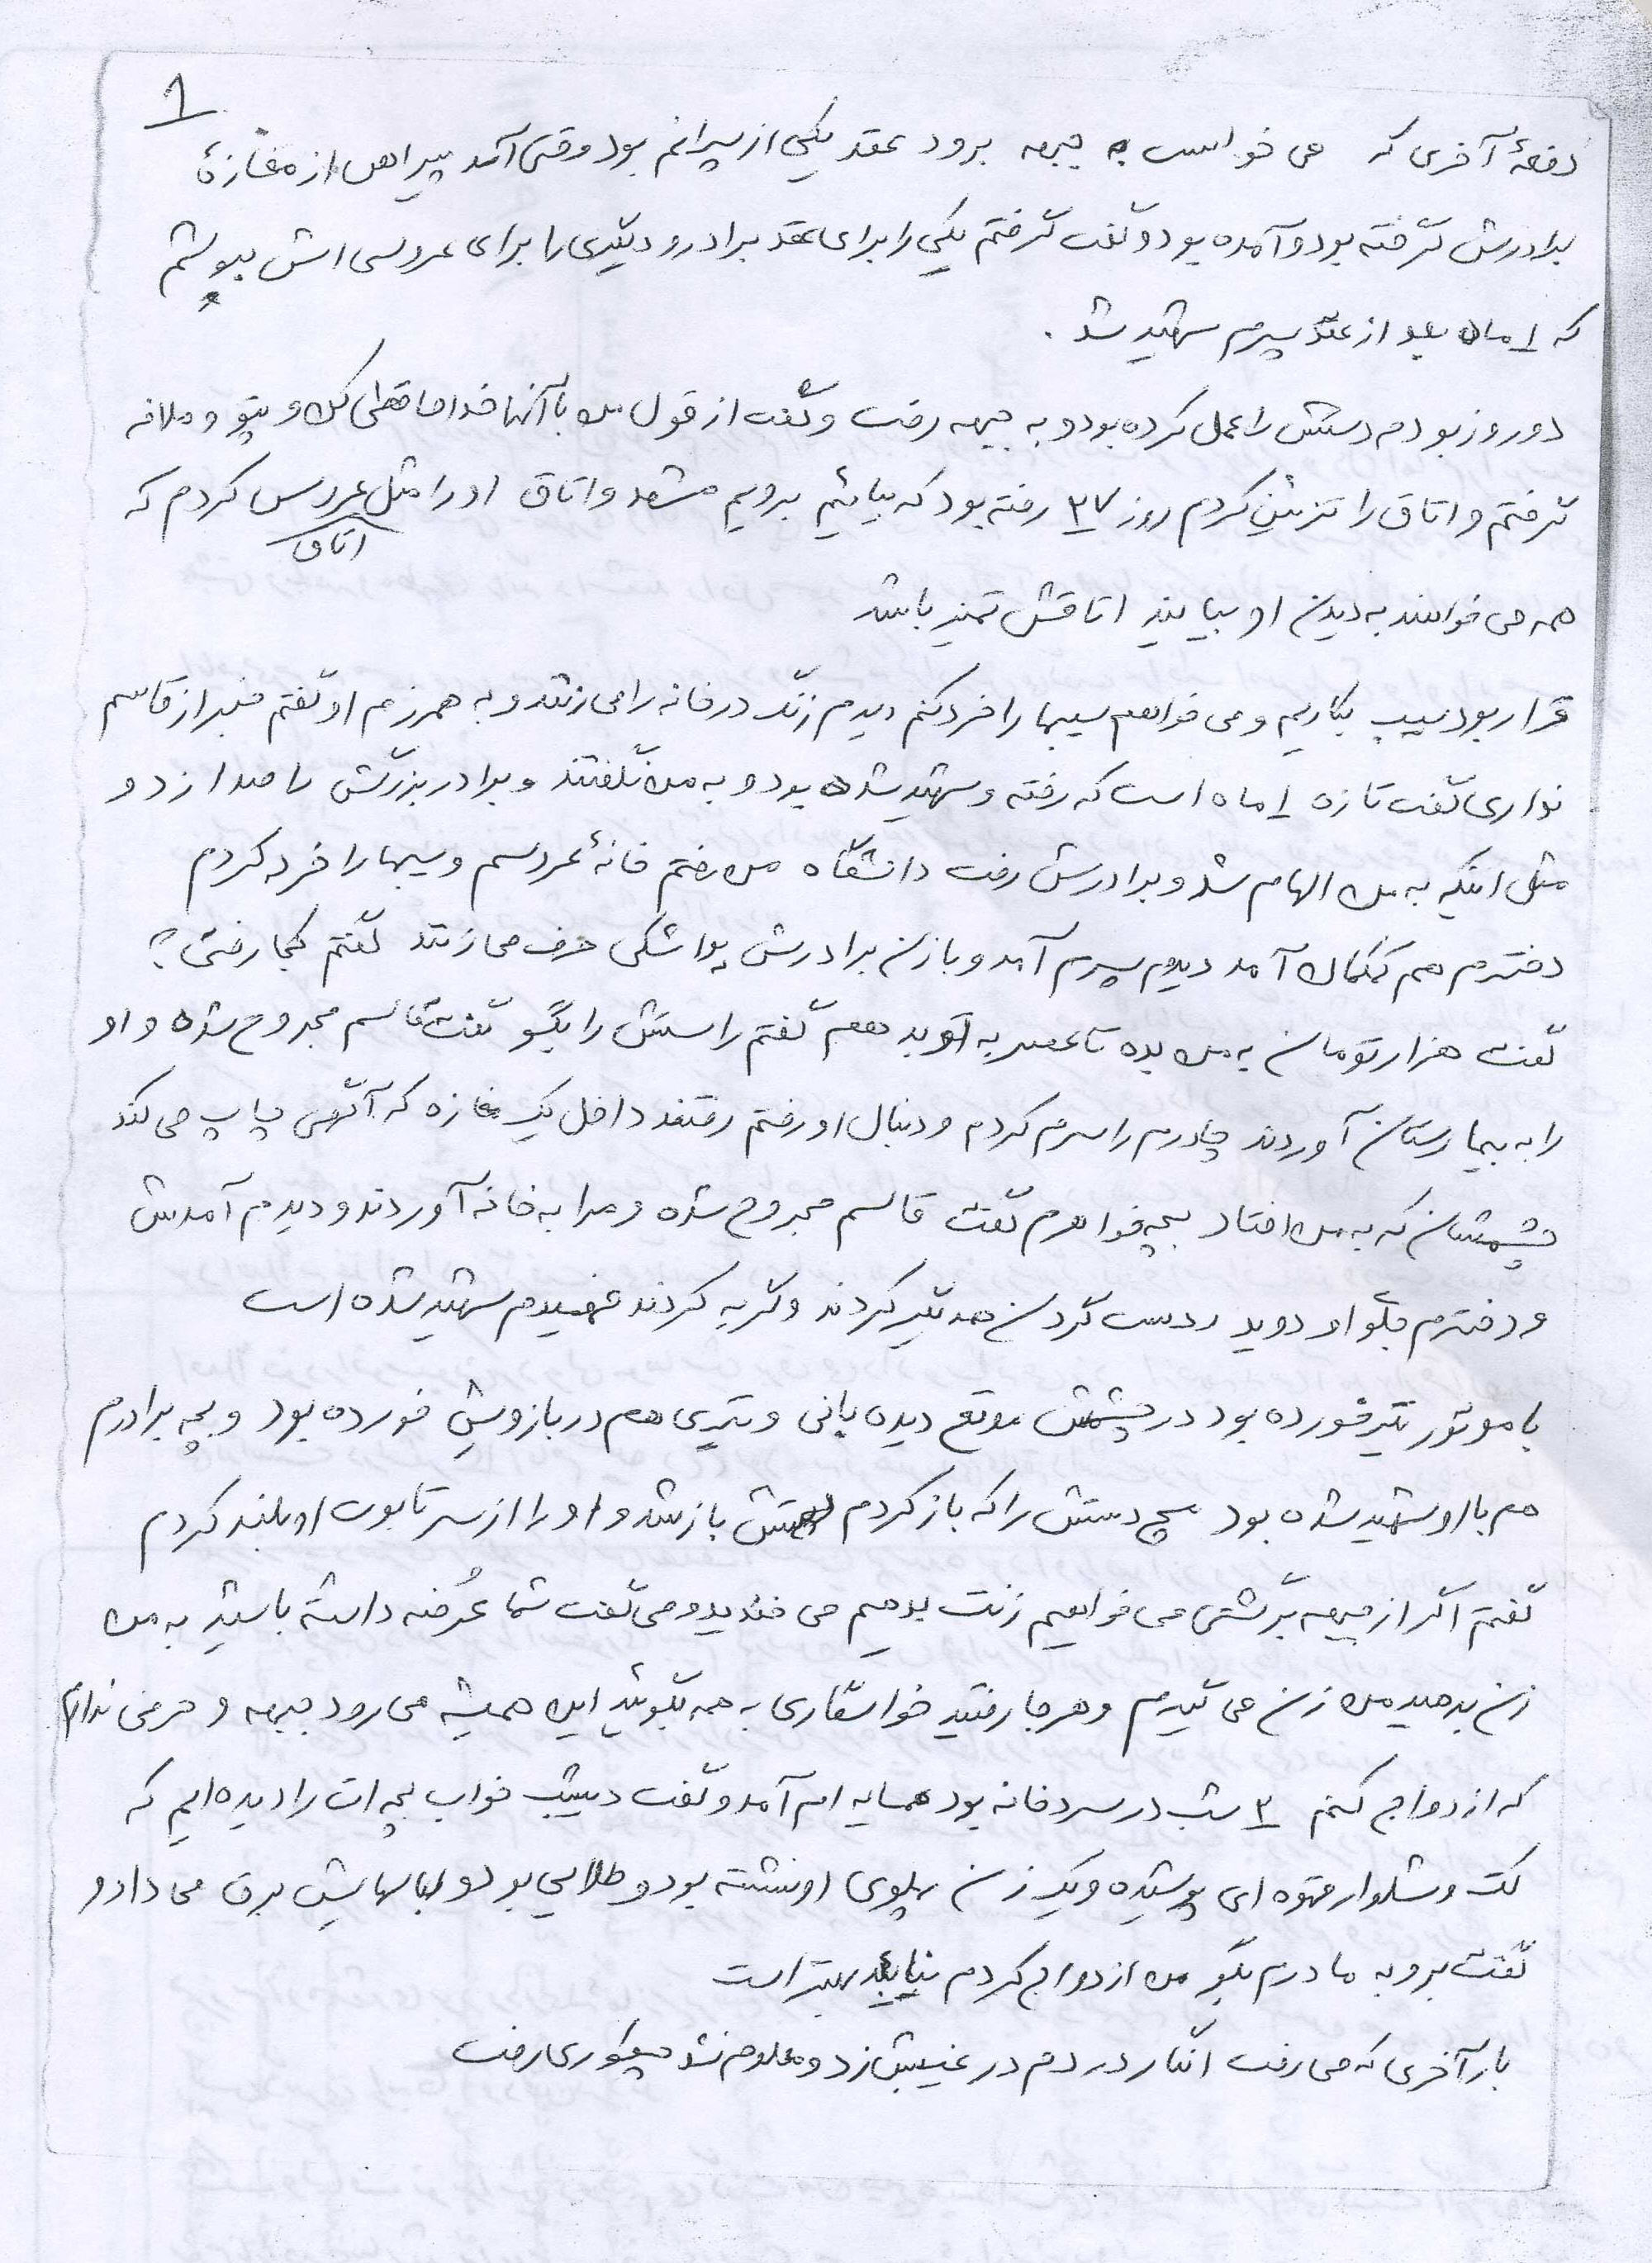 1
دفعهٔ آخری که می خواست به جبهه برود عقد یکی از پسرانم بود وقتی آمد پیراهن از مغازهٔ
برادرش گرفته بود و آمده بود و گفت گرفتم یکی را برای عقد برادر و دیگری را برای عروسی اش بپوشم
که 1 ماه بعد از عقد پسرم شهید شد .
دو روز بود دستش را عمل کرده بود و به جبهه رفت و گفت از قول من با آنها خداحافظی کن و پتو و ملافه
گرفتم و اتاق را تزئین کردم روز ۳۷ رفته بود که بیائیم برویم مشهد و اتاق او را مثل عروس کردم که
اتاق
همه می خواهند به دیدن او بیایند اتاقش تمیز باشد
قرار بود سیب بکاریم و می خواهم سیبها را خرد کنم دیدم زنگ در خانه را می زنند و به همرزم او گفتم خبر از قاسم
نداری گفت تازه 1 ماه است که رفته و شهید شده بود و به من نگفتند و برادر بزرگش را صدا زد و
مثل اینکه به من الهام شد و برادرش رفت دانشگاه من رفتم خانهٔ عروسم و سیبها را خرد کردم
دخترم هم کمکمان آمد دیدم پسرم آمد و با زن برادرش یواشکی حرف می زنند گفتم کجا رفتی ؟
گفت هزار تومان به من بده تا عصر به تو بدهم گفتم راستش را بگو گفت قاسم مجروح شده و او
را به بیمارستان آوردند چادرم را سرم کردم و دنبال او رفتم رفتند داخل یک مغازه که آگهی چاپ می کند
چشمشان که به من افتاد بچه خواهرم گفت قاسم مجروح شده و مرا به خانه آوردند و دیدم آمدش
و دخترم جلو او دوید و دست گردن همدیگر کردند و گریه کردند فهمیدم شهید شده است
با موتور تیر خورده بود در چشمش موقع دیده بانی و تیری هم در بازویش خورده بود و بچه برادرم
هم با او شهید شده بود مچ دستش را که باز کردم دستش باز شد و او را از سر تابوت او بلند کردم
گفتم اگر از جبهه برگشتی می خواهیم زنت بدهیم می خندید و می گفت شما عُرضه داشته باشید به من
زن بدهید من زن می گیرم و هر جا رفتید خواستگاری به همه بگوئید این همیشه می رود جبهه و حرفی ندارم
که ازدواج کنم ۳ شب در سردخانه بود همسایه ام آمد و گفت دیشب خواب بچه ات را دیده ایم که
کت و شلوار قهوه ای پوشیده و یک زن پهلوی او نشسته بود و طلایی بود و لباسهایش برق می داد و
گفت برو به مادرم بگو من ازدواج کردم نیاید بهتر است
بار آخری که می رفت انگار در دم در غیبش زد و معلوم نشد چطوری رفت